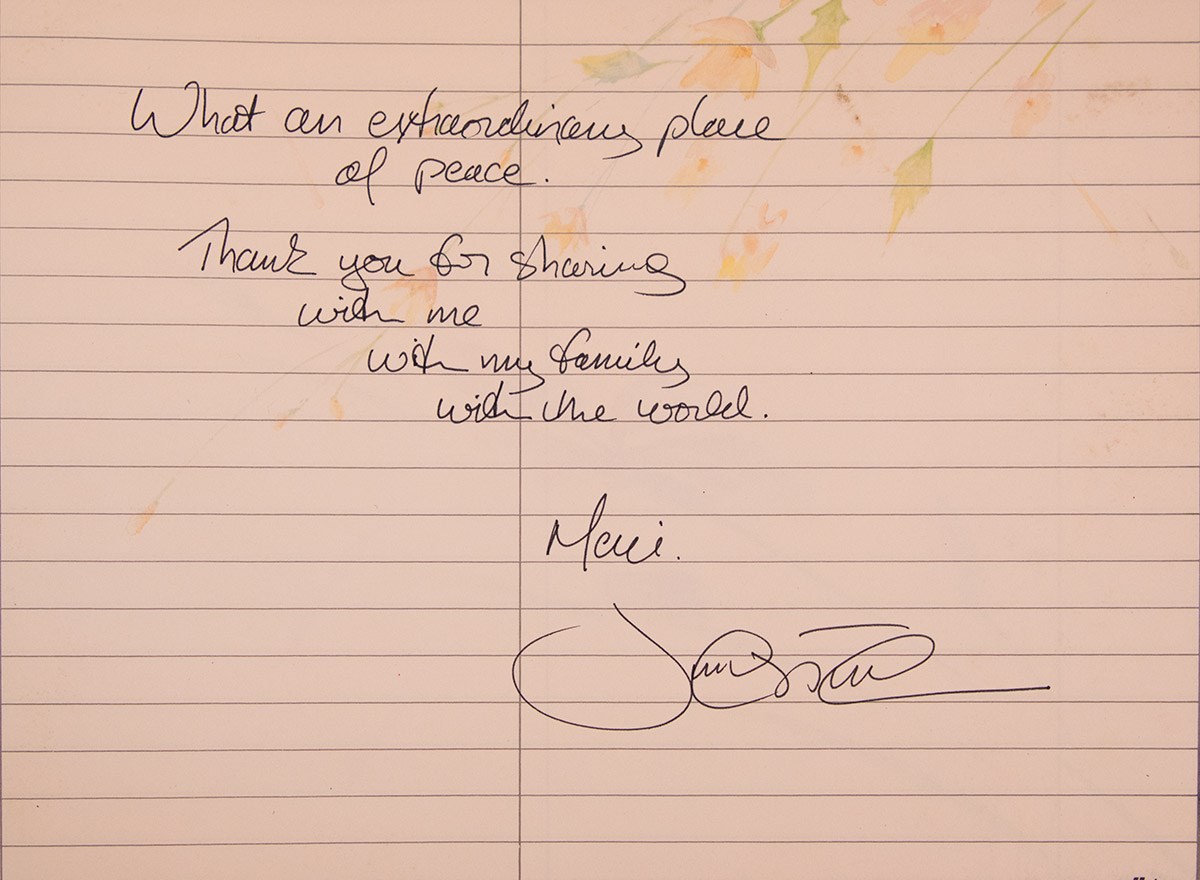 What an extraordinary place
of peace.
Thank you for sharing
with me
with my family
with the world.
Merci.